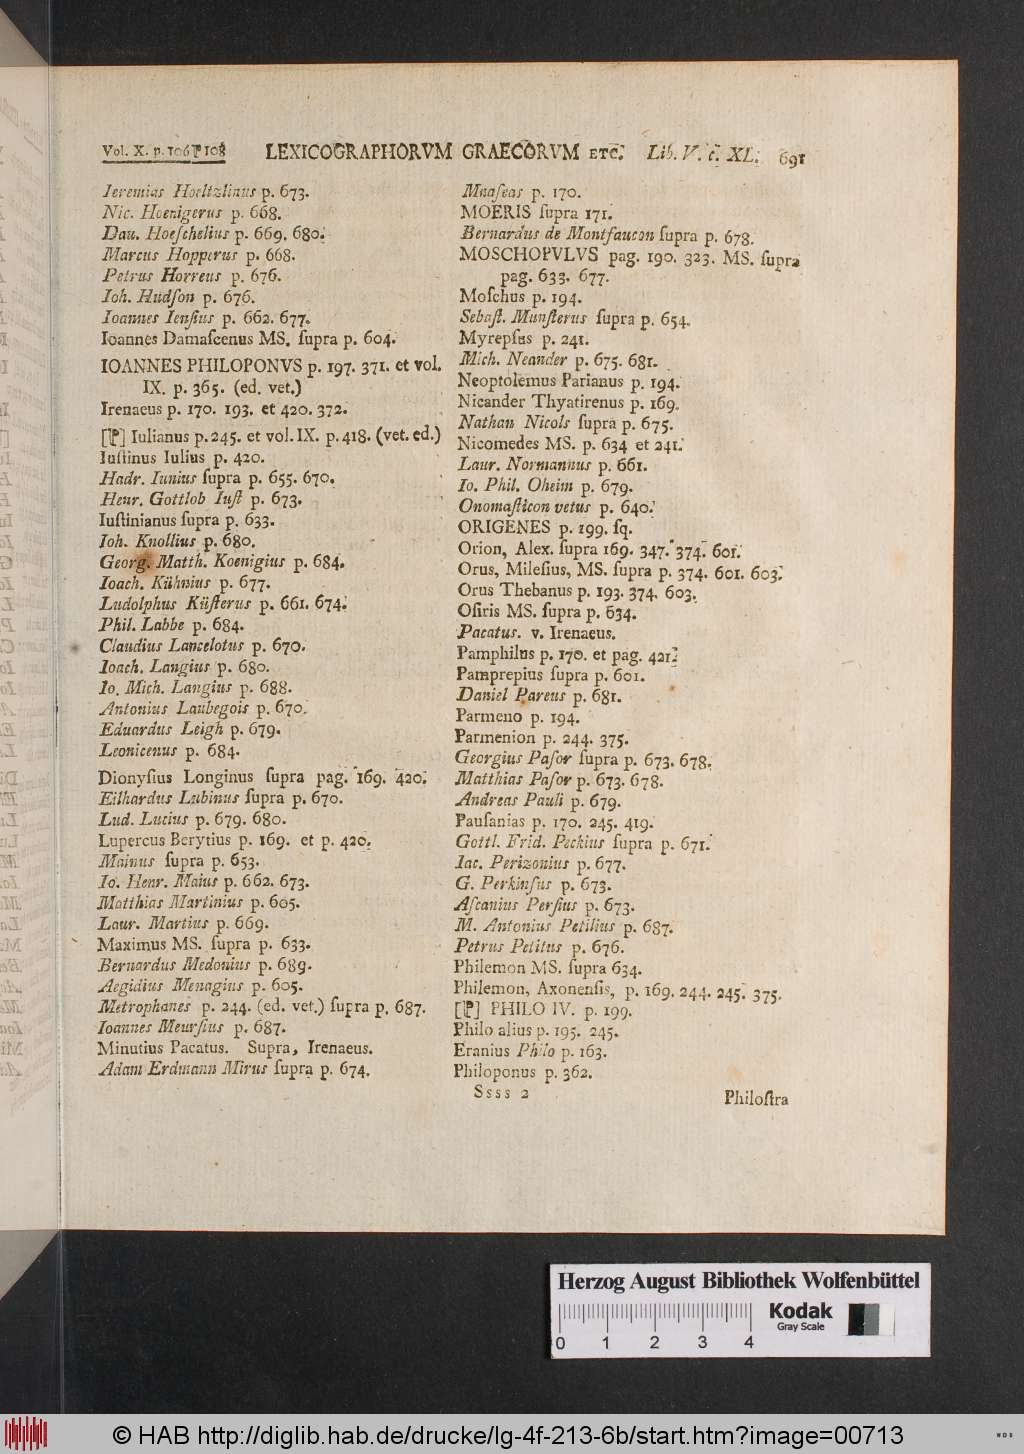 Vol. X. p. 106 ⁋ 108 LEXICOGRAPHORVM GRAECORVM ETC. Lib. V. c. XL. 691
Ieremias Hoeltzlinus p. 673.
Nic. Hoenigerus p. 668.
Dau. Hoeſchelius p. 669. 680.
Marcus Hopperus p. 668.
Petrus Horreus p. 676.
Ioh. Hudſon p. 676.
Ioannes Ienſius p. 662. 677.
Ioannes Damaſcenus MS. ſupra p. 604.
IOANNES PHILOPONVS p. 197. 371. et vol.
IX. p. 365. (ed. vet.)
Irenaeus p. 170. 193. et 420. 372.
[⁋] Iulianus p. 245. et vol. IX. p. 418. (vet. ed.)
Iuſtinus Iulius p. 420.
Hadr. Iunius ſupra p. 655. 670.
Henr. Gottlob Iuſt p. 673.
Iuſtinianus ſupra p. 633.
Ioh. Knollius p. 680.
Georg. Matth. Koenigius p. 684.
Ioach. Kühnius p. 677.
Ludolphus Küſterus p. 661. 674.
Phil. Labbe p. 684.
Claudius Lancelotus p. 670.
Ioach. Langius p. 680.
Io. Mich. Langius p. 688.
Antonius Laubegois p. 670.
Eduardus Leigh p. 679.
Leonicenus p. 684.
Dionyſius Longinus ſupra pag. 169. 420.
Eilhardus Lubinus ſupra p. 670.
Lud. Lucius p. 679. 680.
Lupercus Berytius p. 169. et p. 420.
Mainus ſupra p. 653.
Io. Henr. Maius p. 662. 673.
Matthias Martinius p. 605.
Laur. Martius p. 669.
Maximus MS. ſupra p. 633.
Bernardus Medonius p. 689.
Aegidius Menagius p. 605.
Metrophanes p. 244. (ed. vet.) ſupra p. 687.
Ioannes Meurſius p. 687.
Minutius Pacatus. Supra, Irenaeus.
Adam Erdmann Mirus ſupra p. 674.
Mnaſeas p. 170.
MOERIS ſupra 171.
Bernardus de Montfaucon ſupra p. 678.
MOSCHOPVLVS pag. 190. 323. MS. ſupra
pag. 633. 677.
Moſchus p. 194.
Sebaſt. Munſterus ſupra p. 654.
Myrepſus p. 241.
Mich. Neander p. 675. 681.
Neoptolemus Parianus p. 194.
Nicander Thyatirenus p. 169.
Nathan Nicols ſupra p. 675.
Nicomedes MS. p. 634 et 241.
Laur. Normannus p. 661.
Io. Phil. Oheim p. 679.
Onomaſticon vetus p. 640.
ORIGENES p. 199. ſq.
Orion, Alex. ſupra 169. 347. 374. 601.
Orus, Mileſius, MS. ſupra p. 374. 601. 603.
Orus Thebanus p. 193. 374. 603.
Oſiris MS. ſupra p. 634.
Pacatus. v. Irenaeus.
Pamphilus p. 170. et pag. 421.
Pamprepius ſupra p. 601.
Daniel Pareus p. 681.
Parmeno p. 194.
Parmenion p. 244. 375.
Georgius Paſor ſupra p. 673. 678.
Matthias Paſor p. 673. 678.
Andreas Pauli p. 679.
Pauſanias p. 170. 245. 419.
Gottl. Frid. Peckius ſupra p. 671.
Iac. Perizonius p. 677.
G. Perkinſus p. 673.
Aſcanius Perſius p. 673.
M. Antonius Petilius p. 687.
Petrus Petitus p. 676.
Philemon MS. ſupra 634.
Philemon, Axonenſis, p. 169. 244. 245. 375.
[⁋] PHILO IV. p. 199.
Philo alius p. 195. 245.
Eranius Philo p. 163.
Philoponus p. 362.
Ssss 2 Philoſtra
Herzog August Bibliothek Wolfenbüttel
Kodak
Gray Scale
0 1 2 3 4
© HAB http://diglib.hab.de/drucke/lg-4f-213-6b/start.htm?image=00713